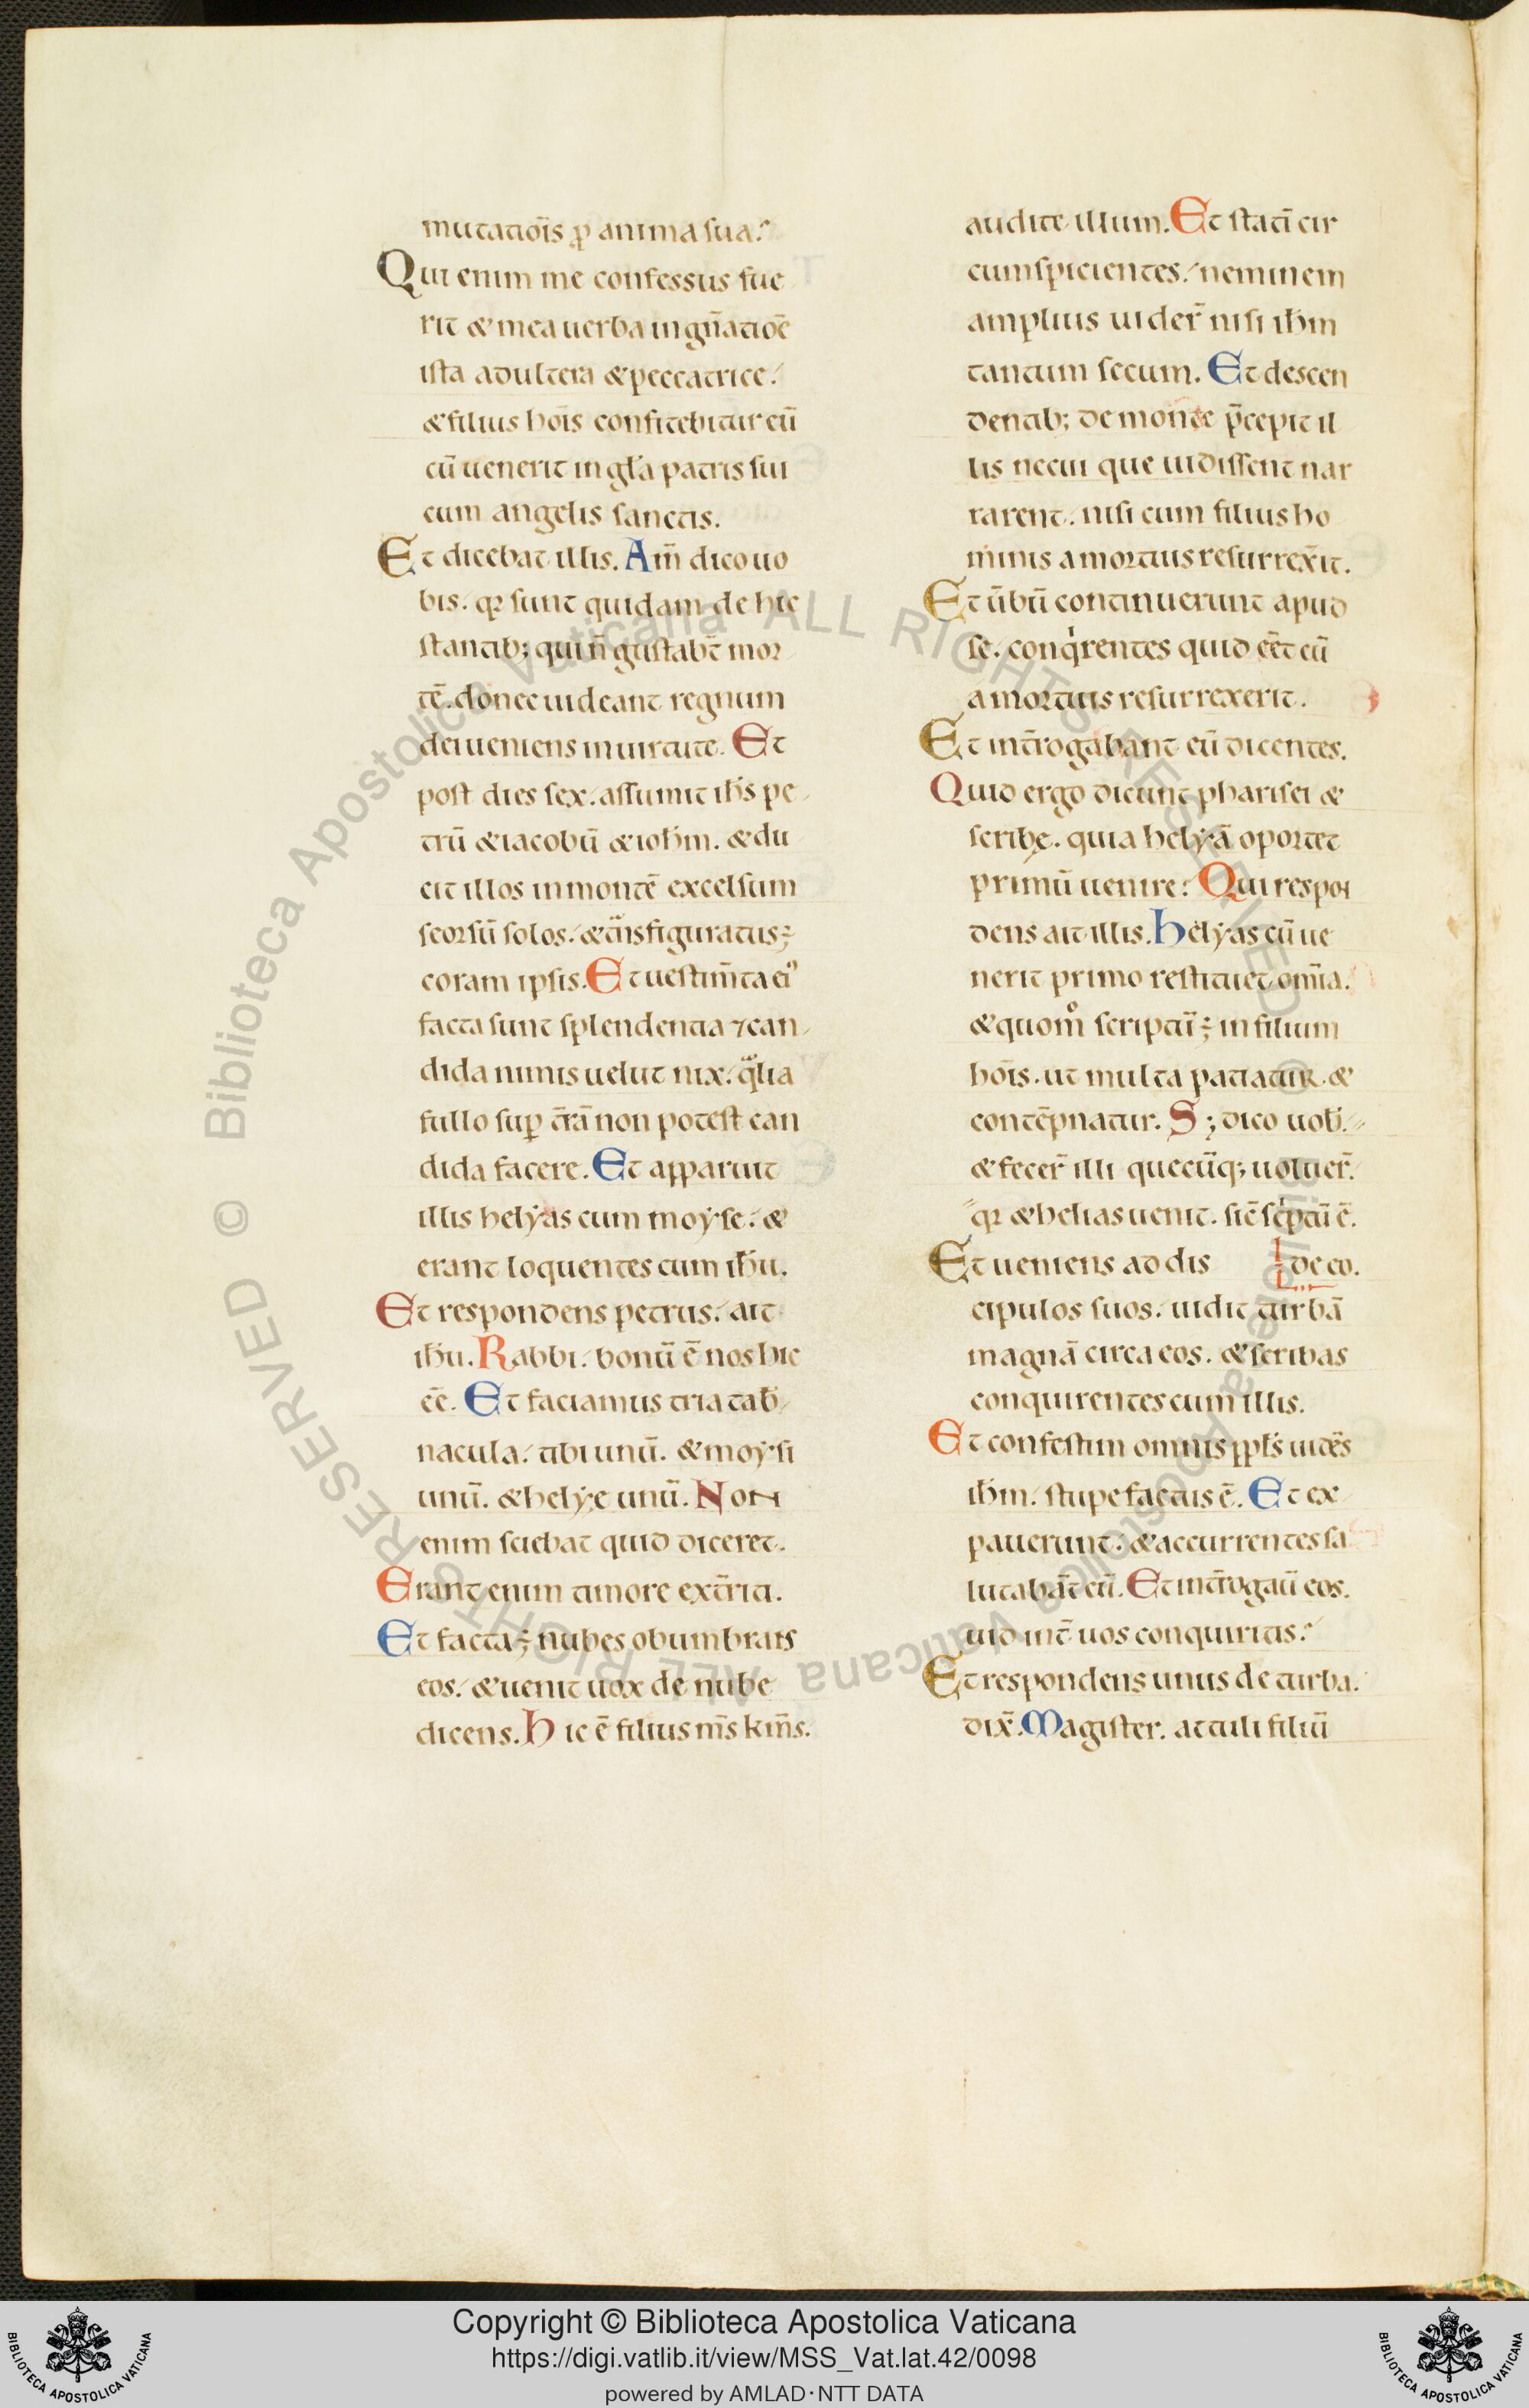 mutatiōis ꝓ anima sua.
Qui enim me confessus fue
rit & mea uerba in gn̄atiōe
ista adultera & peccatrice.
& filius hoīs confitebitur eū
cū uenerit in gl̄a patris sui
cum angelis sanctis.
Et dicebat illis. Am̄ dico uo
bis. qꝛ sunt quidam de hic
stantib; qui n̄ gustab̄t moꝛ
tē. donec uideant regnum
dei ueniens in uirtute. Et
post dies sex. assumit ih̄s pe
trū & iacobū & ioh̄m. & du
cit illos in montē excelsum
seorsū solos. & tͣnsfiguratus ē
coram ipsis. Et uestim̄ta eiꝰ
facta sunt splendentia ⁊ can
dida nimis uelut nix. qͣlia
fullo suꝑ t̄rā non potest can
dida facere. Et apparuit
illis helẏas cum moẏse. &
erant loquentes cum ih̄u.
Et respondens petrus. ait
ih̄u. Rabbi. bonū ē nos hic
eē. Et faciamus tria tab̄
nacula. tibi unū. & moẏsi
unū. & helẏe unū. Non
enim sciebat quid diceret.
Erant enim timore ext̄riti.
Et facta ē nubes obumbrans
eos. & uenit uox de nube
dicens. Hic ē filius m̄s km̄s.
audite illum. Et statī cir
cumspicientes. neminem
amplius uider̄ nisi ih̄m
tantum secum. Et descen
dentib; de monte p̄cepit il
lis ne cui que uidissent nar
rarent. nisi cum filius ho
minis a mortuis resurrex̄it.
Et ūbū continuerunt apud
se. conqͥrentes quid eēt cū
a mortuis resurrexerit.
Et int̄rogabant eū dicentes.
Quid ergo dicunt pharisei &
scribe. quia helẏā oportet
primū uenire. Qui respon
dens ait illis. Helẏas cū ue
nerit primo restituet om̄ia.
& quom̊ scriptū ē in filium
hoīs. ut multa patiatur. &
contēpnatur. S; dico uob̄.
& fecer̄ illi quecūq; uoluer̄.
qꝛ & helias uenit. sic̄ scͥptū ē.
Et ueniens ad dis de eo.
cipulos suos. uidit turbā
magnā circa eos. & scribas
conquirentes cum illis.
Et confestim omnis ppl̄s uidēs
ih̄m. stupefactus ē. Et ex
pauerunt. & accurrentes sa
lutabāt eū. Et int̄rogauī eos.
uid int̄ uos conquiritis.
Et respondens unus de turba.
dix̄. Magister. attuli filiū
Copyright © Biblioteca Apostolica Vaticana
https://digi.vatlib.it/view/MSS_Vat.lat.42/0098
powered by AMLAD·NTT DATA
BIBLIOTECA APOSTOLICA VATICANA
BIBLIOTECA APOSTOLICA VATICANA
Biblioteca Apostolica Vaticana ALL RIGHTS RESERVED ©
Biblioteca Apostolica Vaticana ALL RIGHTS RESERVED ©